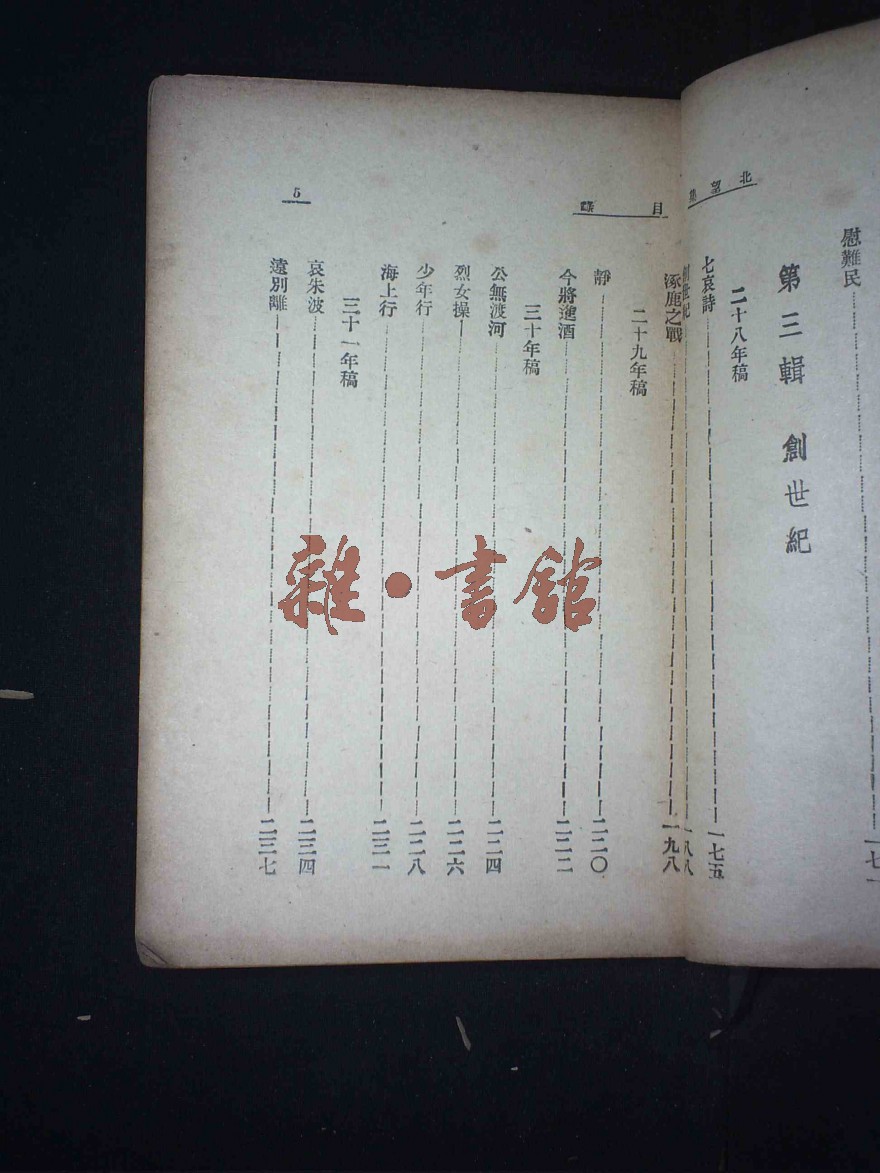 北望集
慰難民 一七一
第三輯 創世紀
二十八年稿
七哀詩 一七五
創世紀 一八八
目錄
5
涿鹿之戰 一九八
二十九年稿
靜 二二〇
今將進酒 二二二
三十年稿
公無渡河 二二四
烈女操 二二六
少年行 二二八
海上行 二三一
三十一年稿
哀朱波 二三四
遠別離 二三七
雜·書館